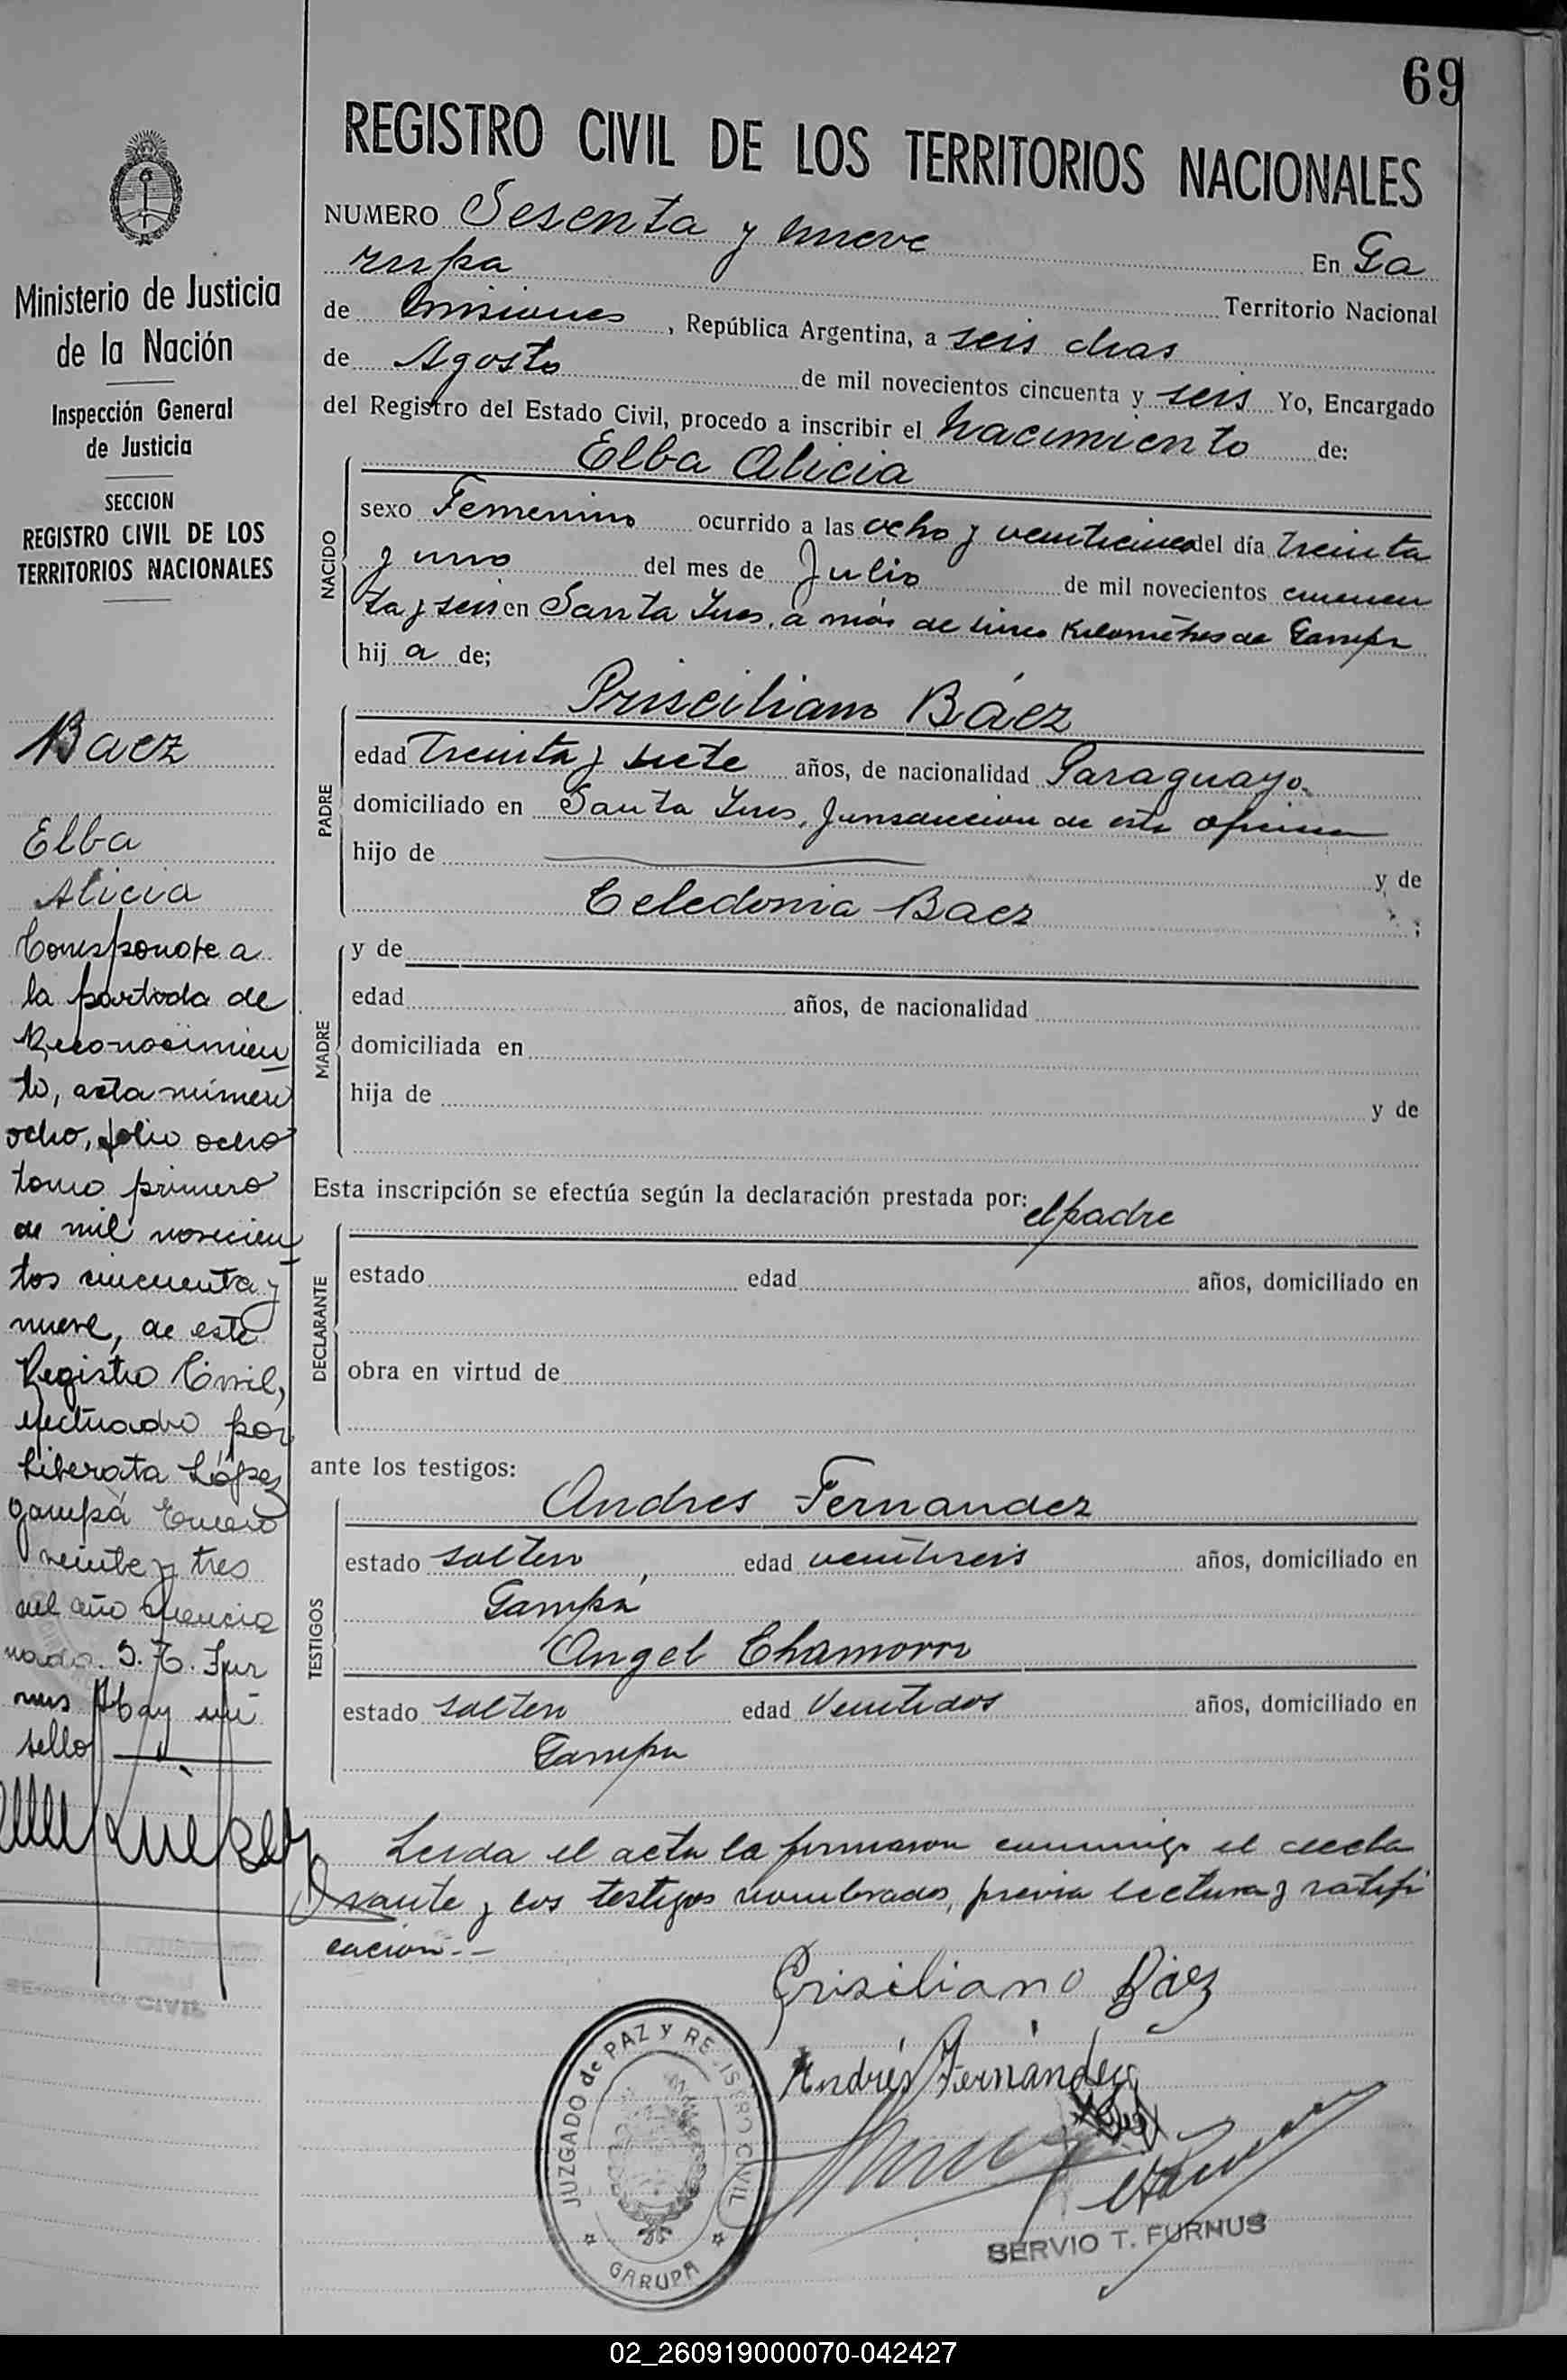 69
REGISTRO CIVIL DE LOS TERRITORIOS NACIONALES
NUMERO Sesenta y nueve En Ga
rupa Territorio Nacional
de Misiones, República Argentina, a seis dias
de Agosto de mil novecientos cincuenta y seis Yo, Encargado
del Registro del Estado Civil, procedo a inscribir el Nacimiento de:
Elba Alicia
NACIDO
sexo Femenino ocurrido a las ocho y veinticinco del día treinta
y uno del mes de Julio de mil novecientos cincuen
ta y seis en Santa Ines, a más de cinco Kilometros de Garupa
hij a de;
Prisciliano Báez
PADRE
edad Treinta y siete años, de nacionalidad Paraguayo.
domiciliado en Santa Ines, Jurisdiccion de esta oficina
hijo de y de
Celedonia Baez ;
MADRE
y de
edad años, de nacionalidad
domiciliada en
hija de y de
Esta inscripción se efectúa según la declaración prestada por: el padre
DECLARANTE
estado edad años, domiciliado en
obra en virtud de
ante los testigos:
TESTIGOS
Andres Fernandez
estado soltero edad veintiseis años, domiciliado en
Garupá
Angel Chamorro
estado soltero edad Veintidos años, domiciliado en
Garupa
Leida el acta la firmaron conmigo el decla
rante y los testigos nombrados, previa lectura y ratifi
cacion.-
Prisiliano Báez
Andrés Fernández
SERVIO T. FURNUS
JUZGADO de PAZ y REGISTRO CIVIL
GARUPA
Ministerio de Justicia
de la Nación
Inspección General
de Justicia
SECCION
REGISTRO CIVIL DE LOS
TERRITORIOS NACIONALES
Baez
Elba
Alicia
Corresponde a
la partida de
Reconocimien
to, acta número
ocho, folio ocho
tomo primero
de mil novecien
tos cincuenta y
nueve, de este
Registro Civil,
efectuado por
Liberata López
Garupá Enero
veinte y tres
del año mencio
nado. S. T. Fur
nus Hay un
sello
REGISTRO CIVIL
02_260919000070-042427